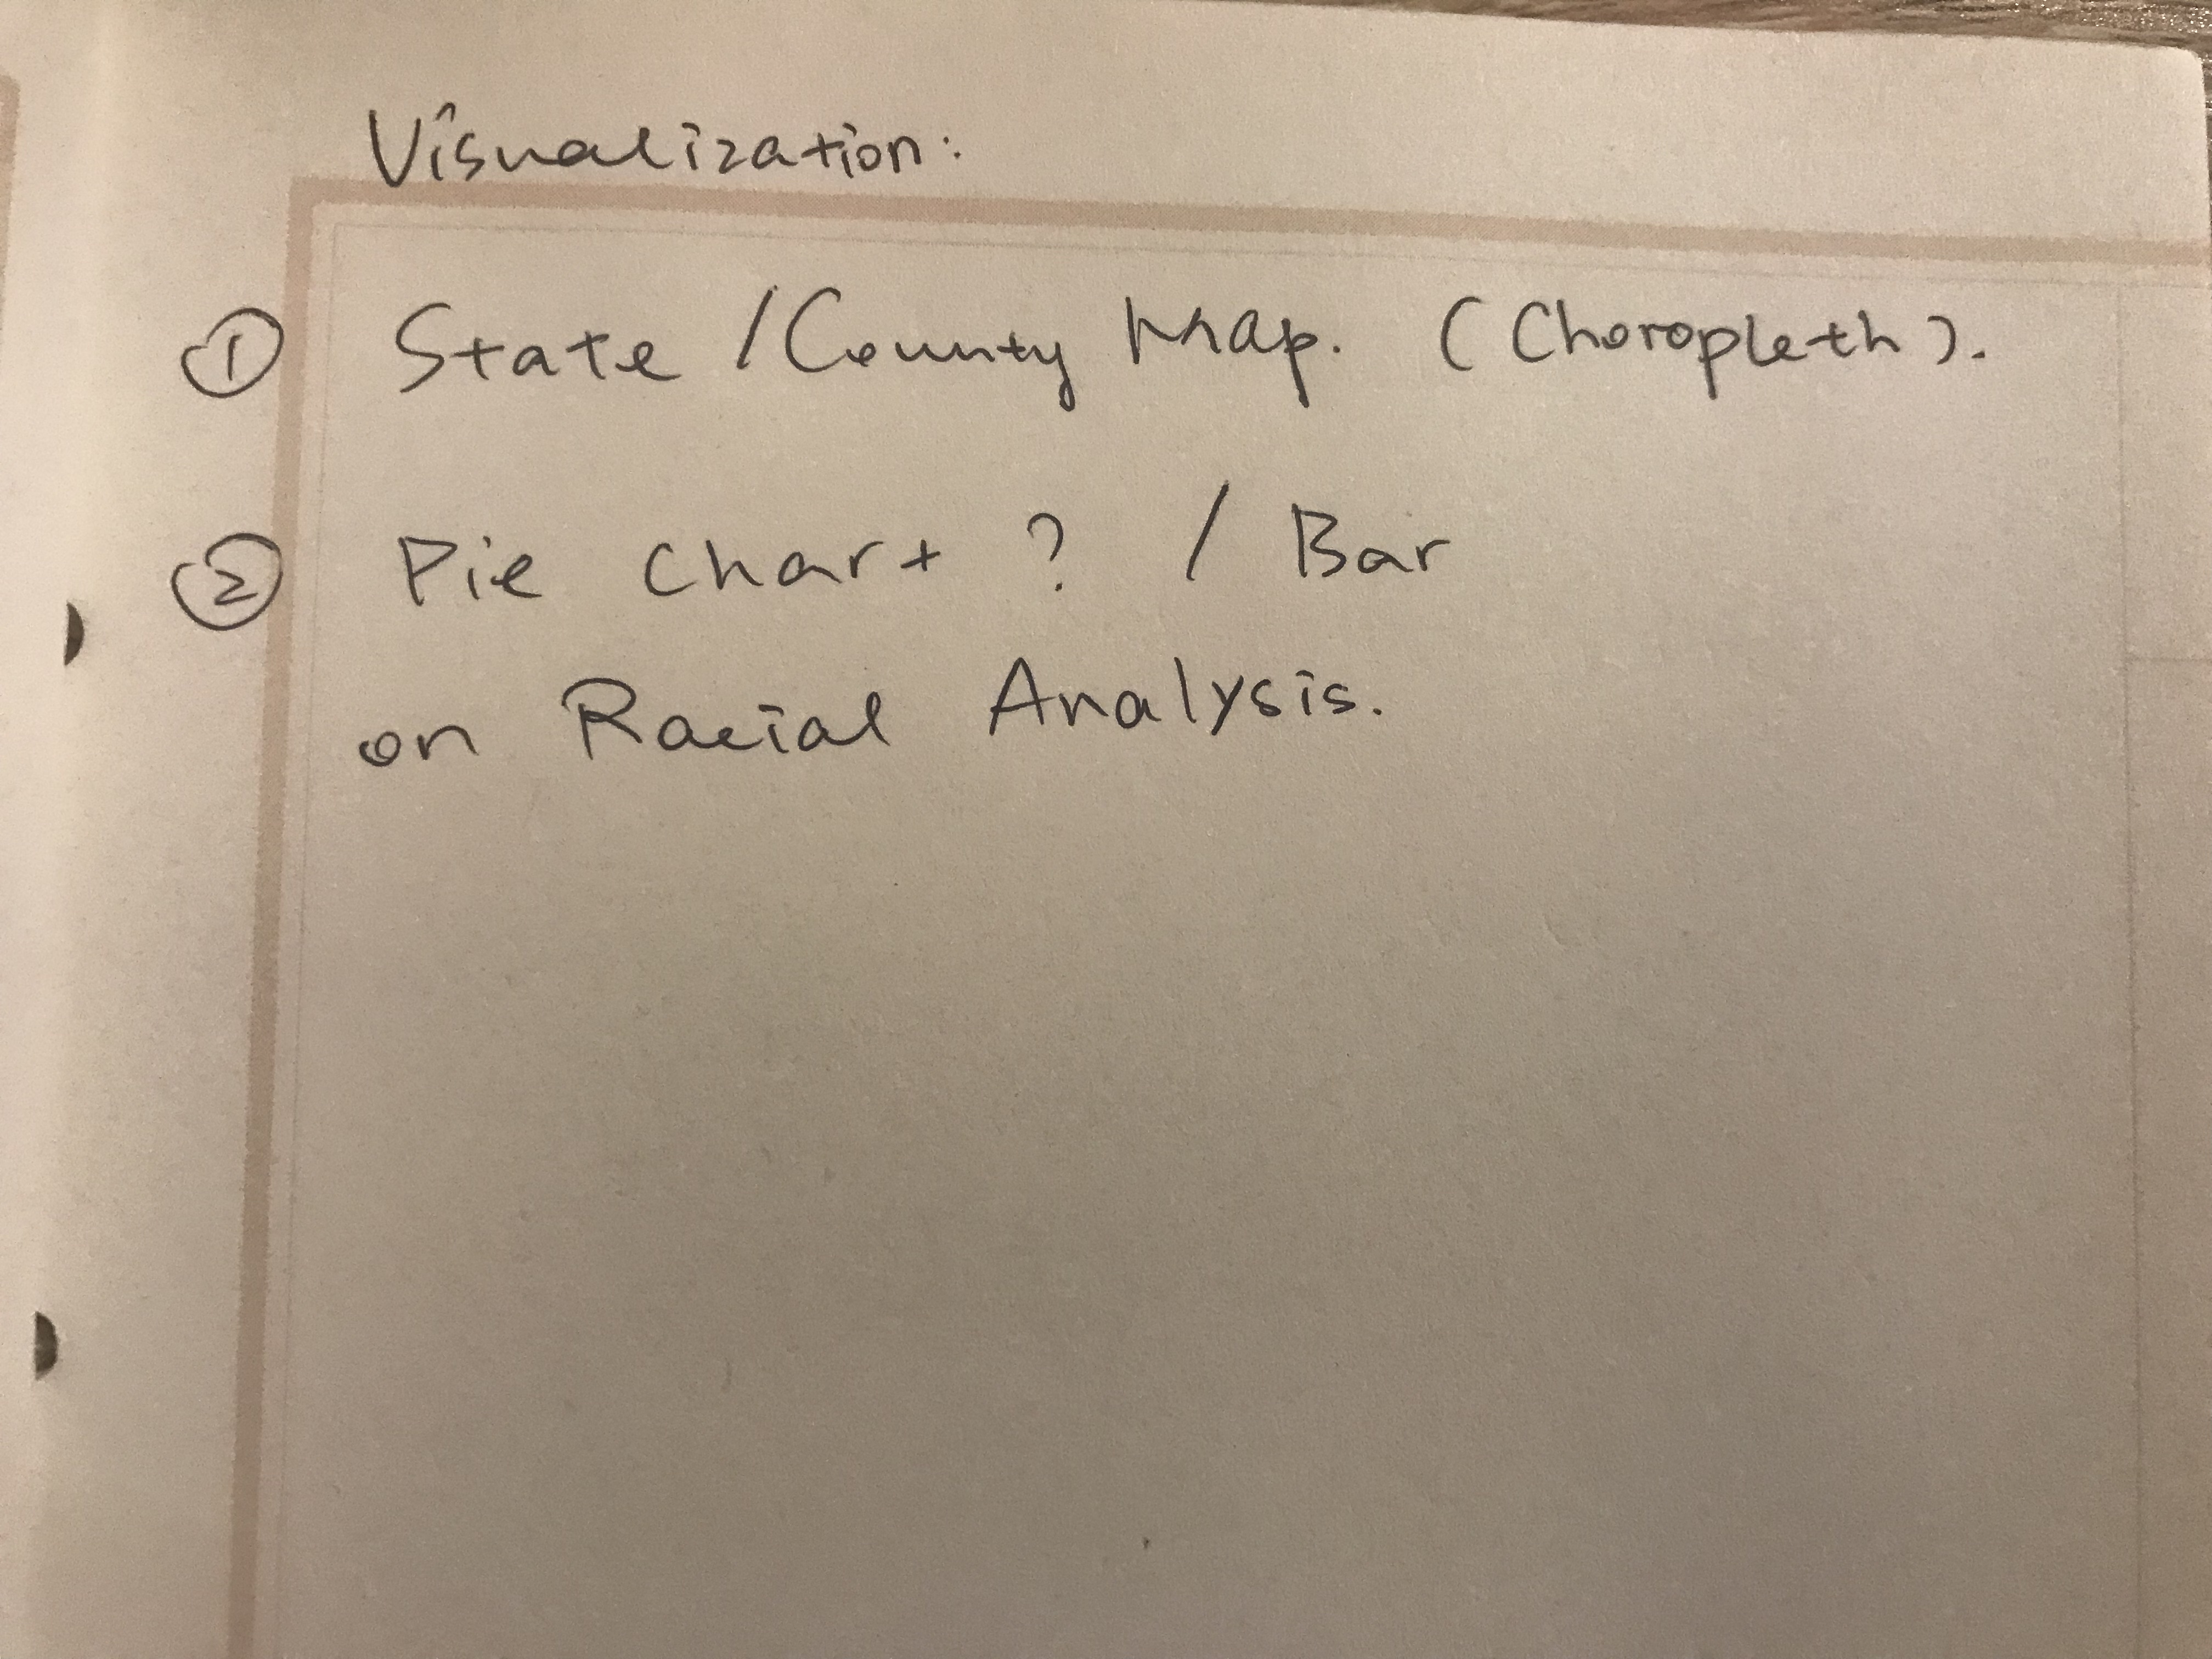 Visualization:
① State / County Map. (Choropleth).
② Pie Chart ? / Bar
on Racial Analysis.